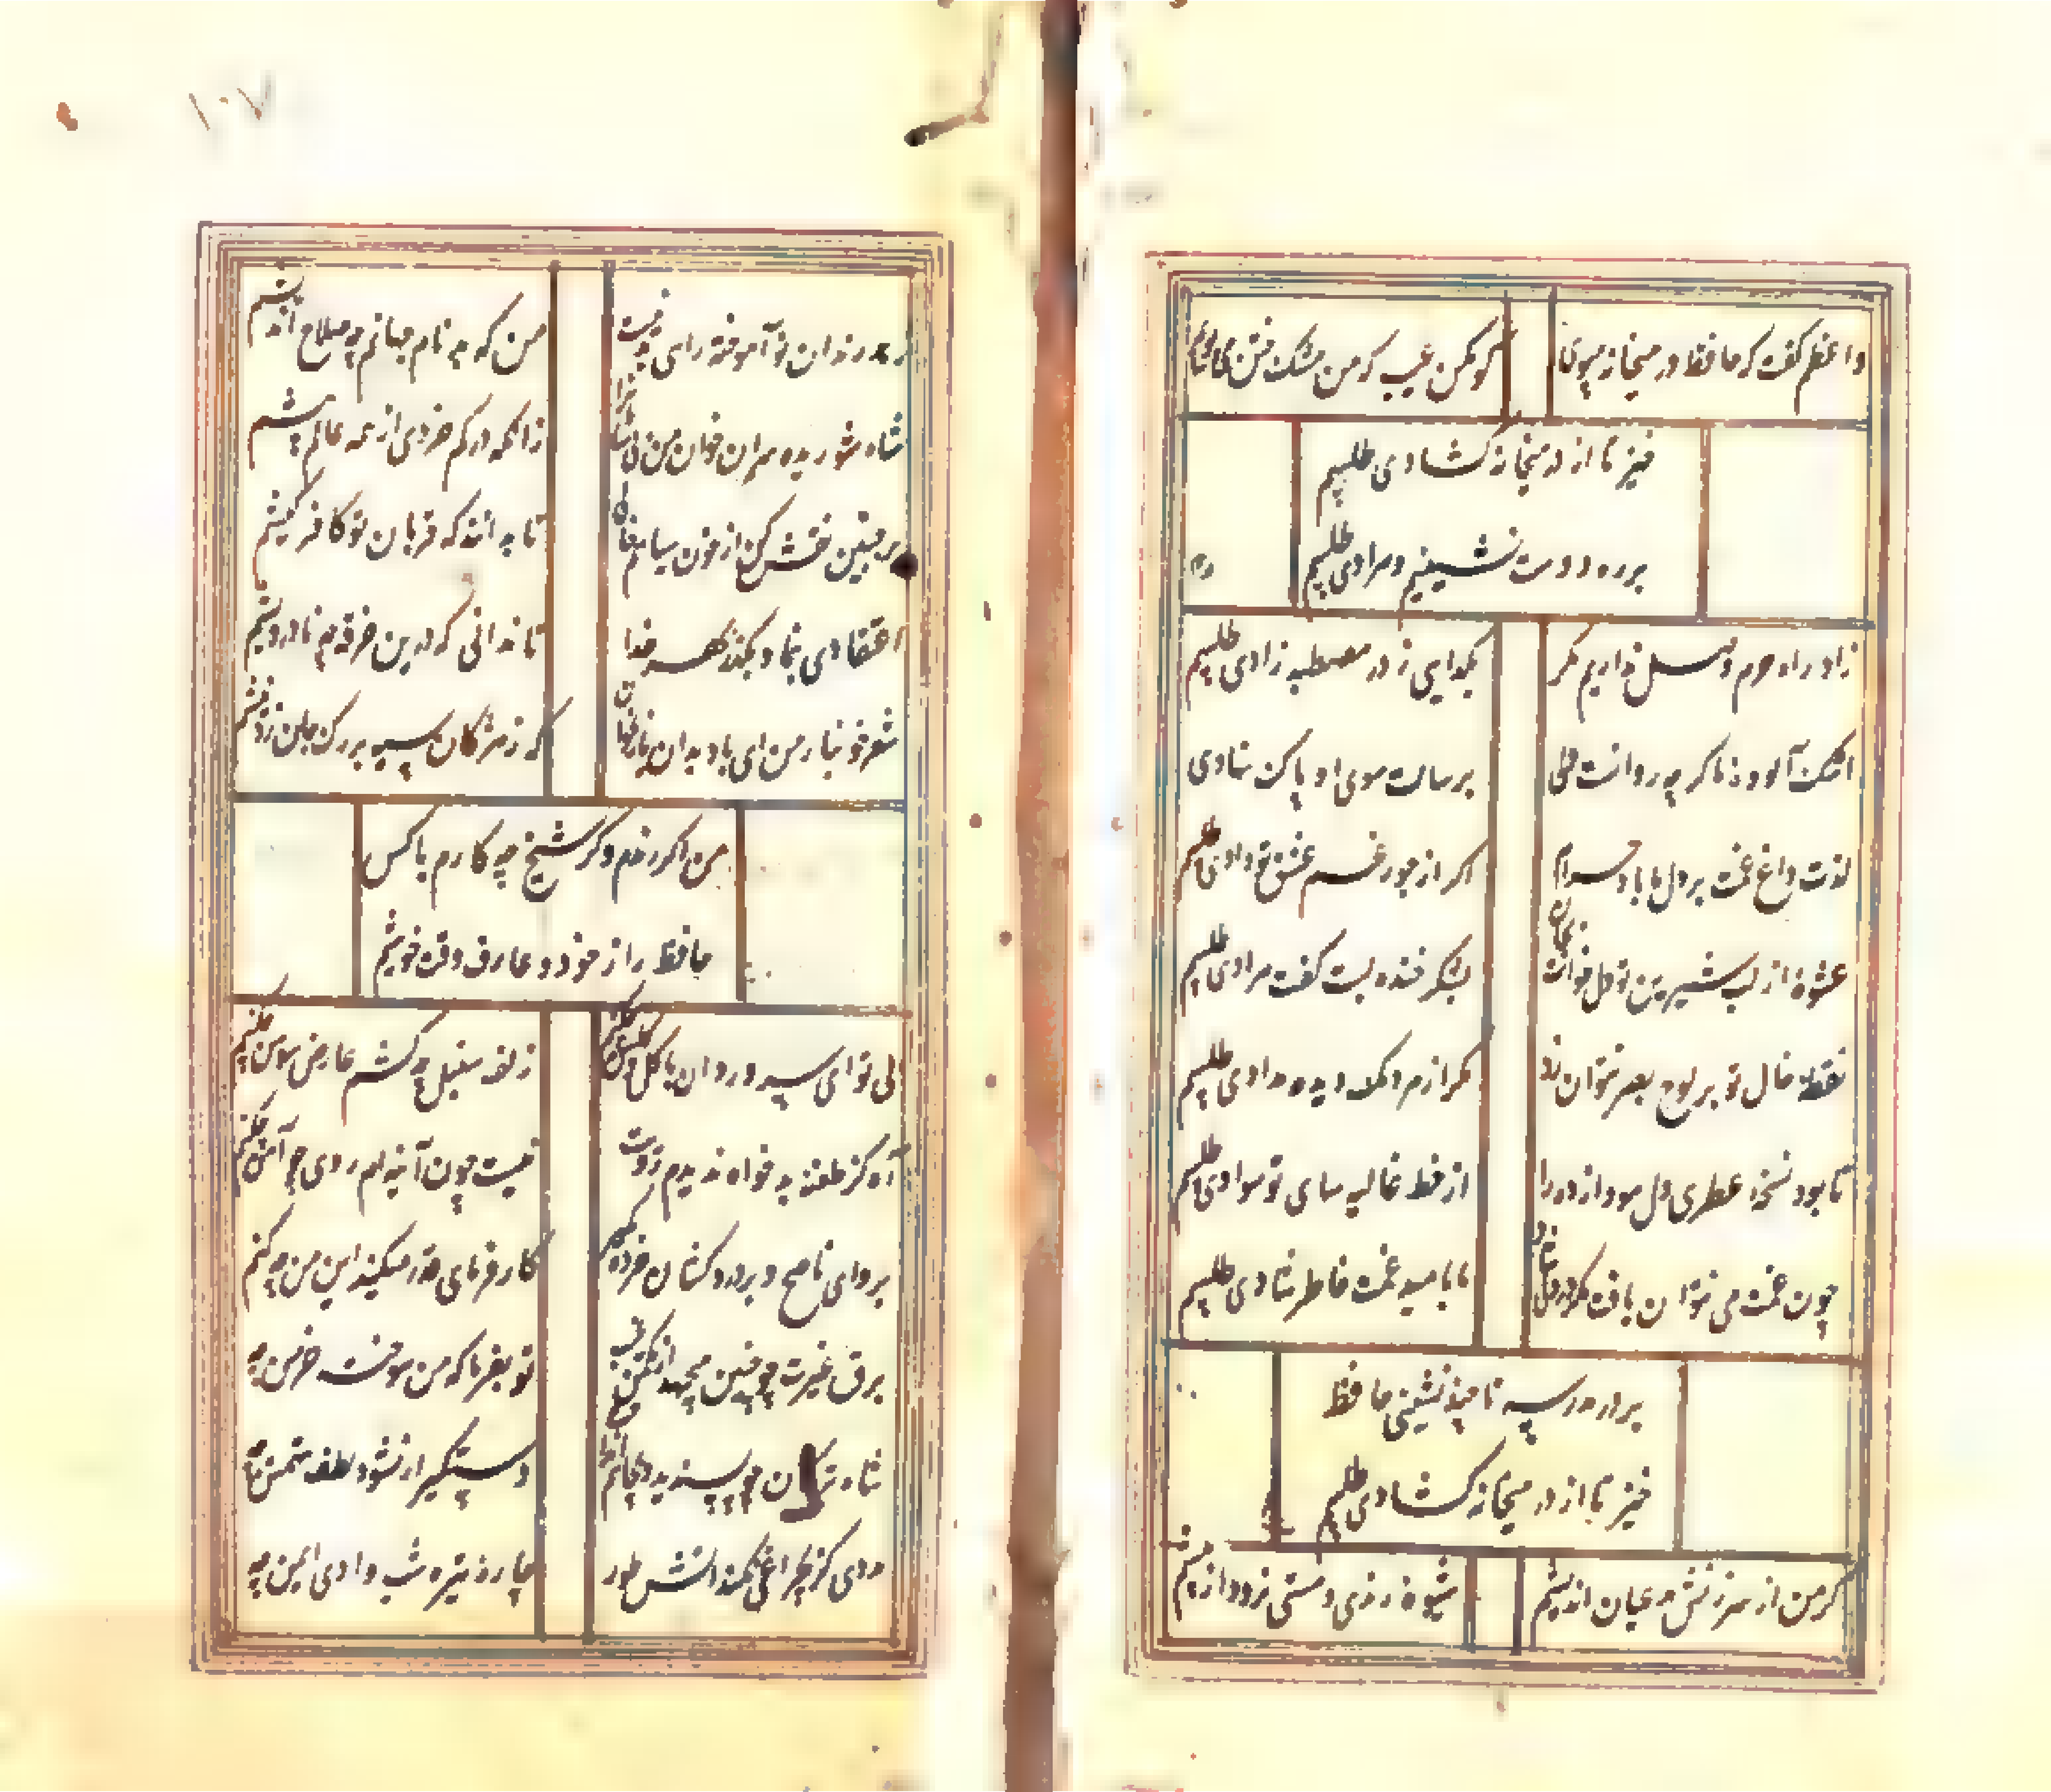 واعظم گفت که حافظ در میخانه مبوی
گو مکن عیب که من مشک ختن می‌بویم
خیز تا از در میخانه گشادی طلبیم
بر ره دوست نشینیم و مرادی طلبیم
زاد راه حرم وصل نداریم مگر
بگدایی ز در مصطبه زادی طلبیم
اشک آلوده ما گرچه روانست ولی
برسالت سوی او پاک نهادی
لذت داغ غمت بر دل ما باد حرام
اگر از جور غم عشق تو دادی طلبیم
عشوه از لب شیرین تو دل خواست بجان
بشکر خنده لبت گفت مرادی طلبیم
نقطه خال تو بر لوح بصر نتوان زد
مگر از مردمک دیده مدادی طلبیم
تا بود نسخه عطری دل سودازده را
از خط غالیه سای تو سوادی طلبیم
چون غمت می نتوان یافت مگر در دل شاد
ما بامید غمت خاطر شادی طلبیم
بر در مدرسه تا چند نشینی حافظ
خیز تا از در میخانه گشادی طلبیم
گر من از سرزنش مدعیان اندیشم
شیوه رندی و مستی نرود از پیشم
۱۰۷
زهد رندان نو آموخته راهی بدهیست
من که بدنام جهانم چه صلاح اندیشم
شاه شوریده سران خوان من بی سامان را
زانکه در کم خردی از همه عالم بیشم
بر جبین نقش کن از خون سیاهم خالی
تا بدانند که قربان تو کافر کیشم
اعتقادی بنما و بگذر بهر خدا
تا ندانی که درین خرقه چه نادرویشم
شعر خونبار من ای باد بدان یار رسان
که ز مژگان سیه بر رگ جان زد نیشم
من اگر رندم و گر شیخ چه کارم با کس
حافظ راز خود و عارف وقت خویشم
بی تو ای سرو روان با گل و گلشن چکنم
زلف سنبل چه کشم عارض سوسن چکنم
آه کز طعنه بدخواه ندیدم رویت
نیست چون آینه‌ام روی چو آهن چکنم
برو ای ناصح و بر دردکشان خرده مگیر
کارفرمای قدر میکند این من چه کنم
برق غیرت چو چنین میجهد از مکمن غیب
تو بفرما که من سوخته خرمن چه
شاه ترکان چو پسندید و بچاهم انداخت
دستگیر ار نشود لطف تهمتن چه
مددی گر بچراغی نکند آتش طور
چاره تیره شب وادی ایمن چه